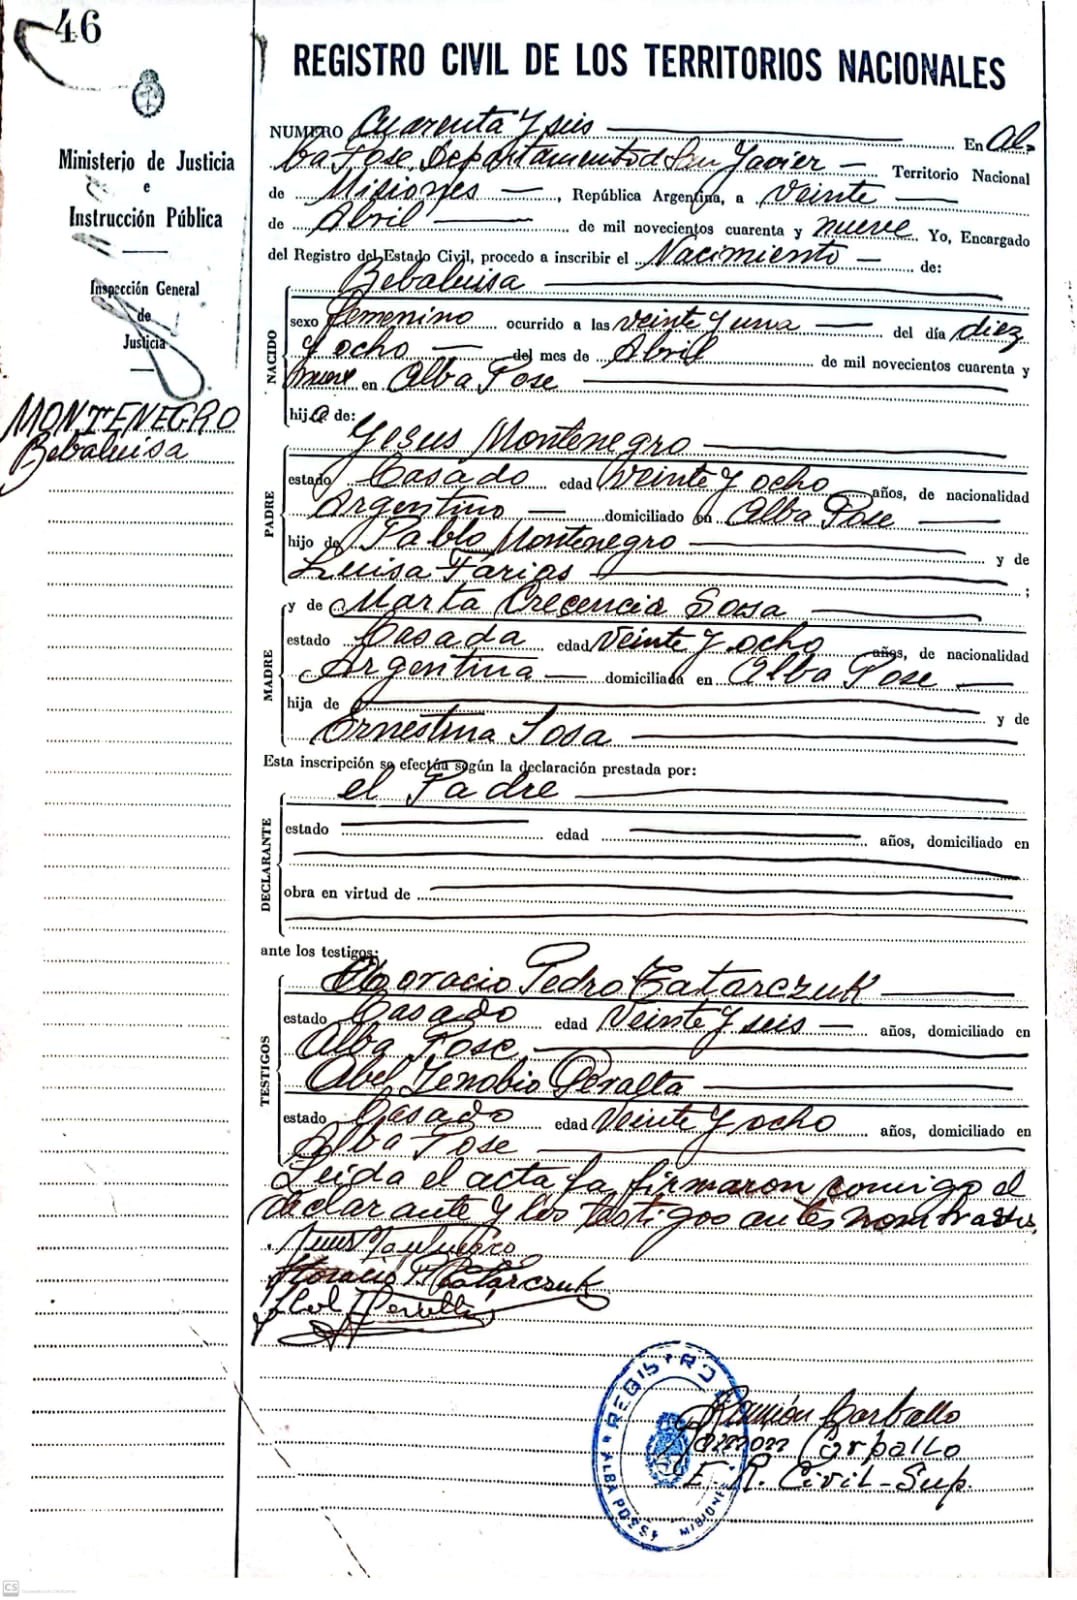 46
REGISTRO CIVIL DE LOS TERRITORIOS NACIONALES
Ministerio de Justicia
e
Instrucción Pública
Inspección General
de
Justicia
MONTENEGRO
Bebaluisa
NUMERO Cuarenta y seis En Al-
ba Pose Departamento d San Javier Territorio Nacional
de Misiones, República Argentina, a veinte
de Abril de mil novecientos cuarenta y nueve Yo, Encargado
del Registro del Estado Civil, procedo a inscribir el Nacimiento de:
NACIDO
Bebaluisa
sexo femenino ocurrido a las veinte y una del día diez
y ocho del mes de Abril de mil novecientos cuarenta y
nueve en Alba Pose
hija de:
PADRE
Yesus Montenegro
estado Casado edad Veinte y ocho años, de nacionalidad
Argentino domiciliado en Alba Pose
hijo de Pablo Montenegro y de
Luisa Farias ;
MADRE
y de Marta Crecencia Sosa
estado Casada edad veinte y ocho años, de nacionalidad
Argentina domiciliada en Alba Pose
hija de y de
Ernestina Sosa
Esta inscripción se efectúa según la declaración prestada por:
DECLARANTE
el Padre
estado edad años, domiciliado en
obra en virtud de
ante los testigos:
TESTIGOS
Horacio Pedro Tatarczuk
estado Casado edad Veinte y seis años, domiciliado en
Alba Pose
Abel Zenobio Peralta
estado Casado edad Veinte y ocho años, domiciliado en
Alba Pose
Leida el acta la firmaron comigo el
declarante y los testigos antes nombrados
Horacio P. Tatarczuk
REGISTRO
ALBA POSSE
MISIONES
Ramón Carballo
Ramon Carballo
E. R. Civil-Sup.
CS